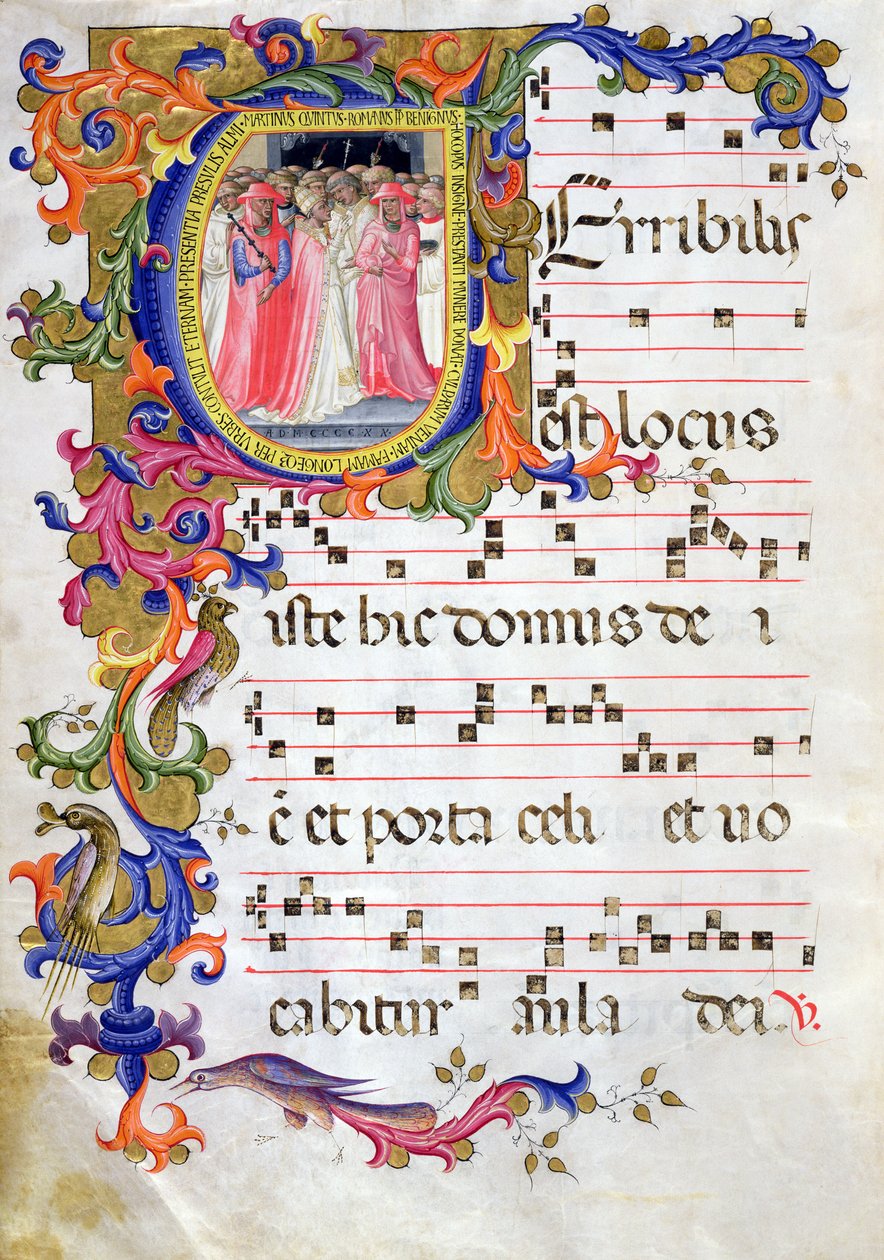 · MARTINVS QVINTVS · ROMANVS PP BENIGNVS · HOC OPVS INSIGNE · PRESTANTI MVNERE DONAT · CVLPARVM VENIAM · FAMAM LONGEQZ PER VRBES · CONTVLIT ETERNAM · PRESENTIA PRESVLIS ALMI
A D M C C C C X X ·
T
Erribilis
est locus
iste hic domus de i
ē et porta celi et uo
cabitur aula dei. V.